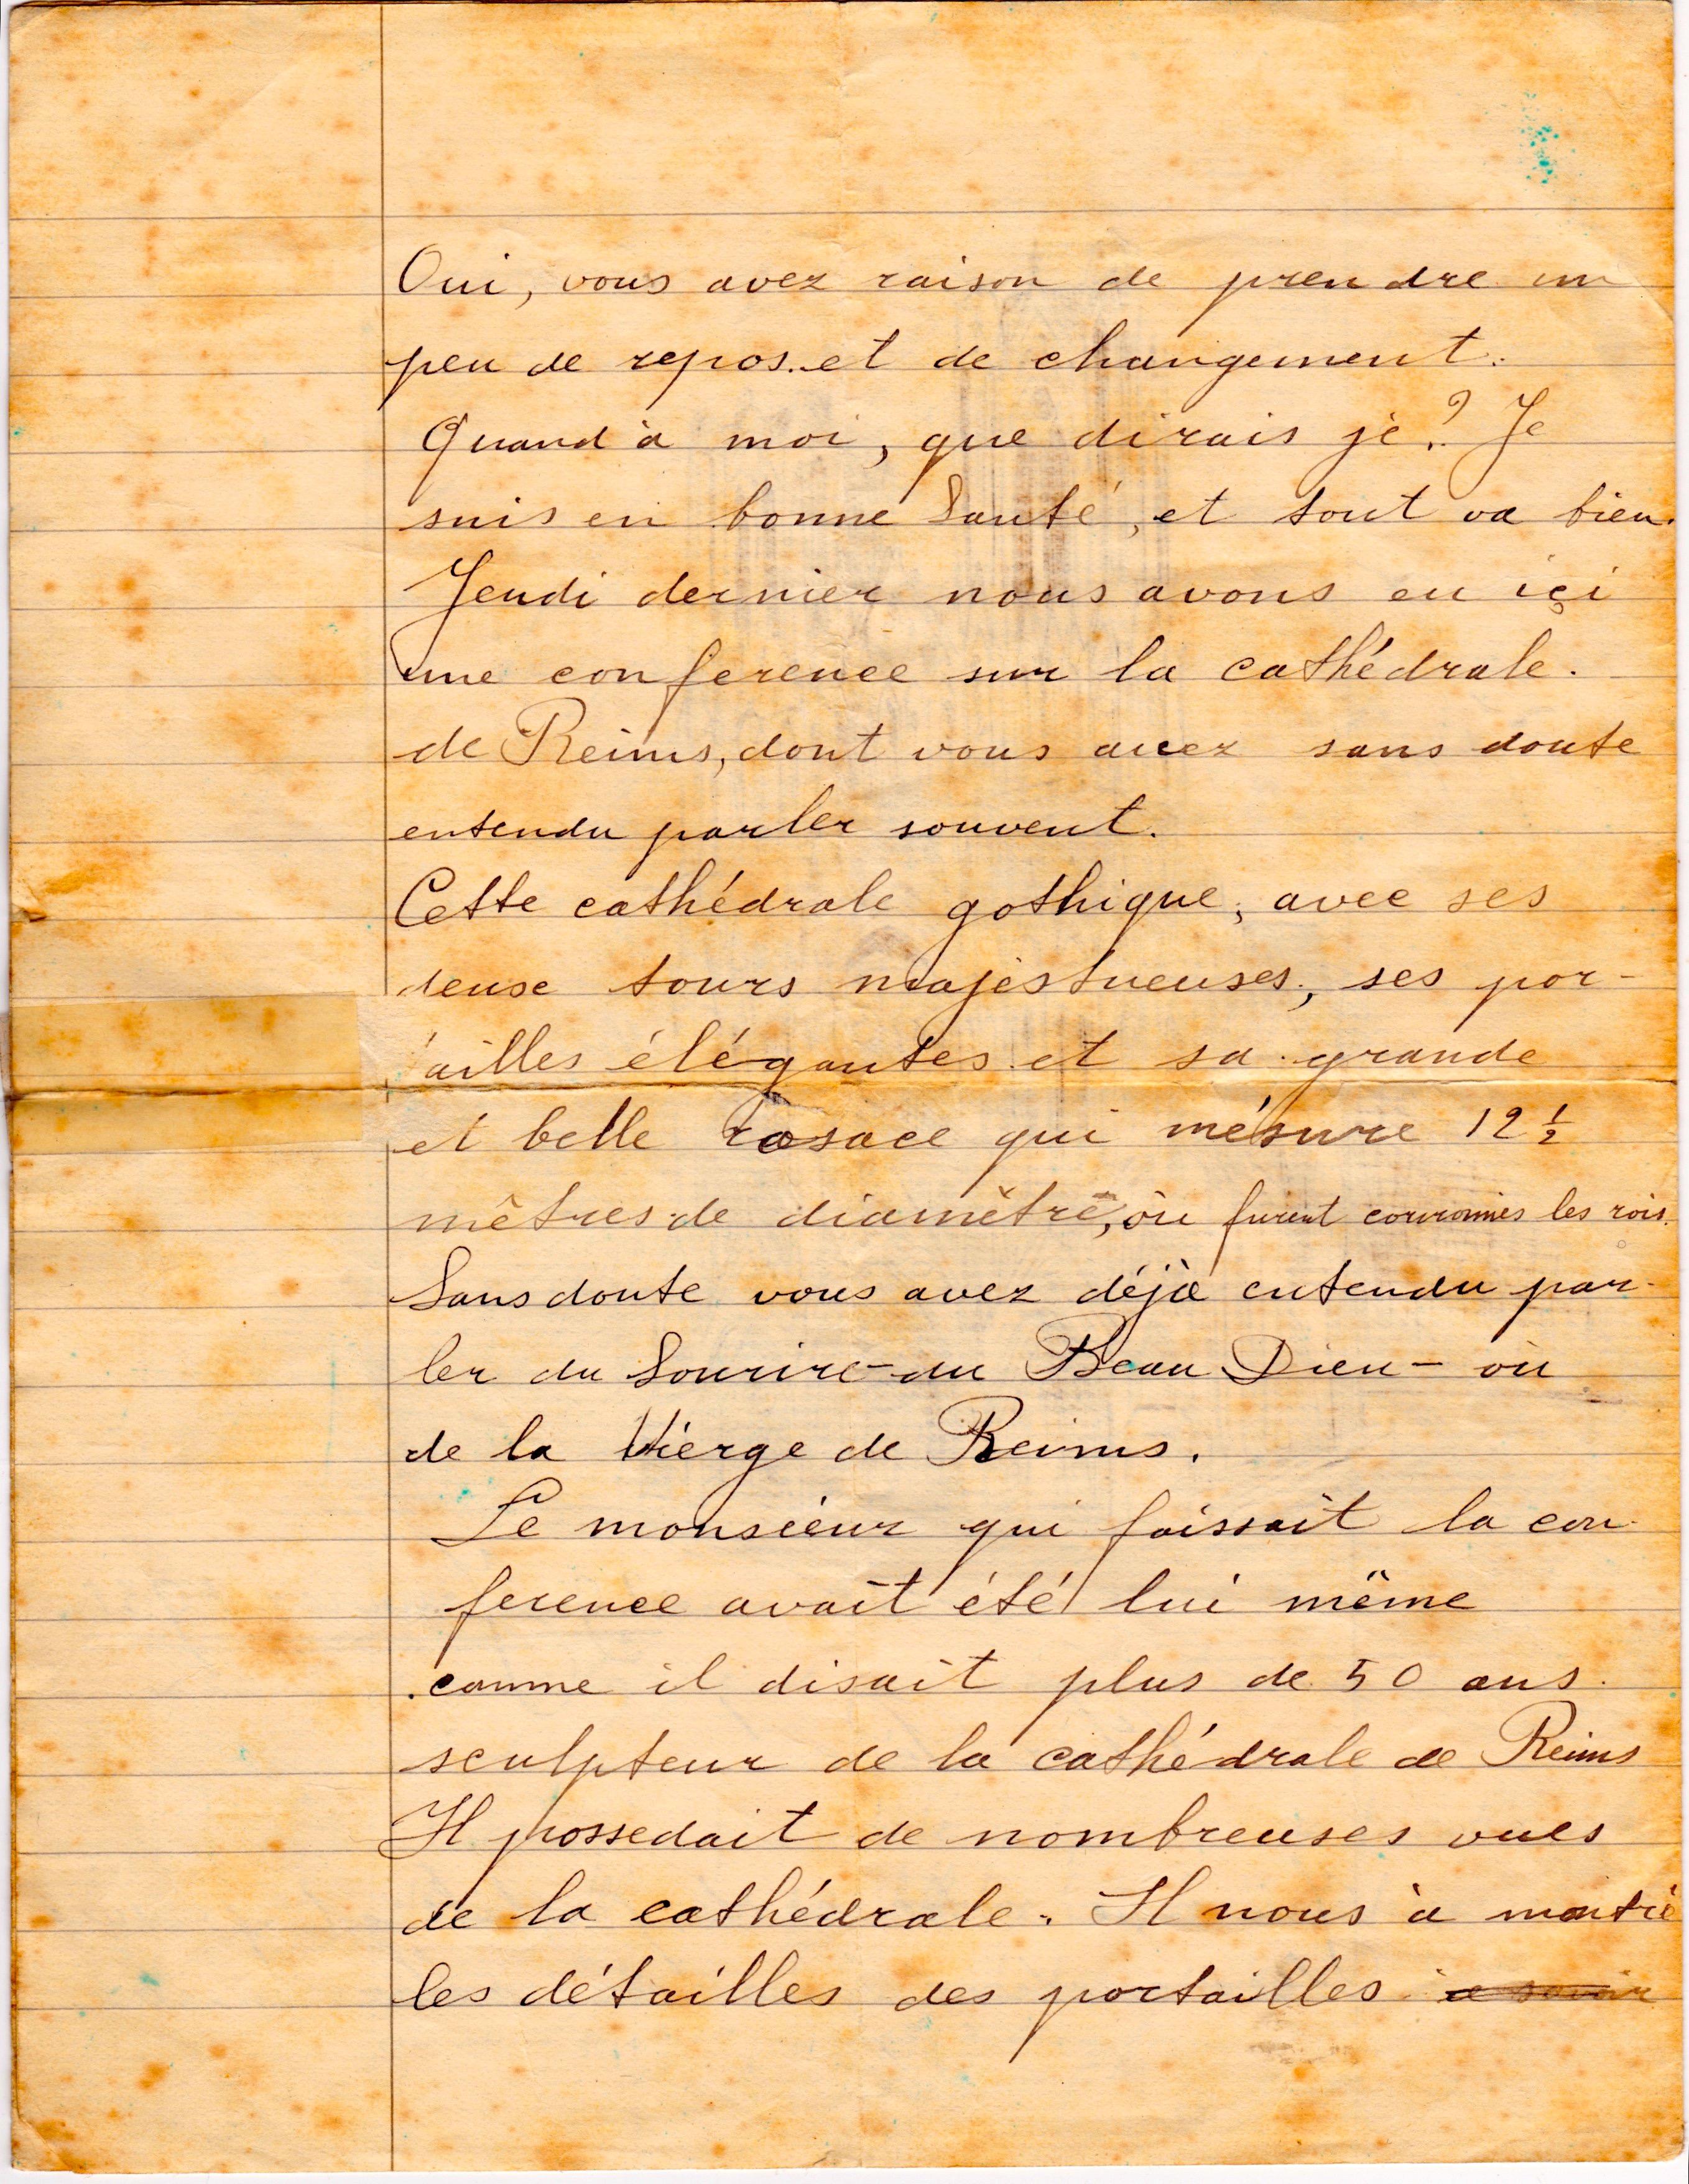 Oui, vous avez raison de prendre un
peu de repos et de changement.
Quand à moi, que dirais je? Je
suis en bonne Santé, et tout va bien.
Jeudi dernier nous avons eu içi
une conference sur la cathédrale.
de Reims, dont vous avez sans doute
entendu parler souvent.
Cette cathédrale gothique, avec ses
deuse tours majestueuses, ses por-
tailles élégantes et sa grande
et belle rosace qui mésure 12 ½
mêtres de diamêtre, où furent couronnés les rois.
Sans doute vous avez déjà entendu par-
ler du Sourire - du Beau Dieu - où
de la Vierge de Reims.
Le monsieur qui faissait la con-
ference avait été lui même
comme il disait plus de 50 ans
sculpteur de la cathédrale de Reims
Il possedait de nombreuses vues
de la cathédrale. Il nous à montré
les détailles des portailles à savoir